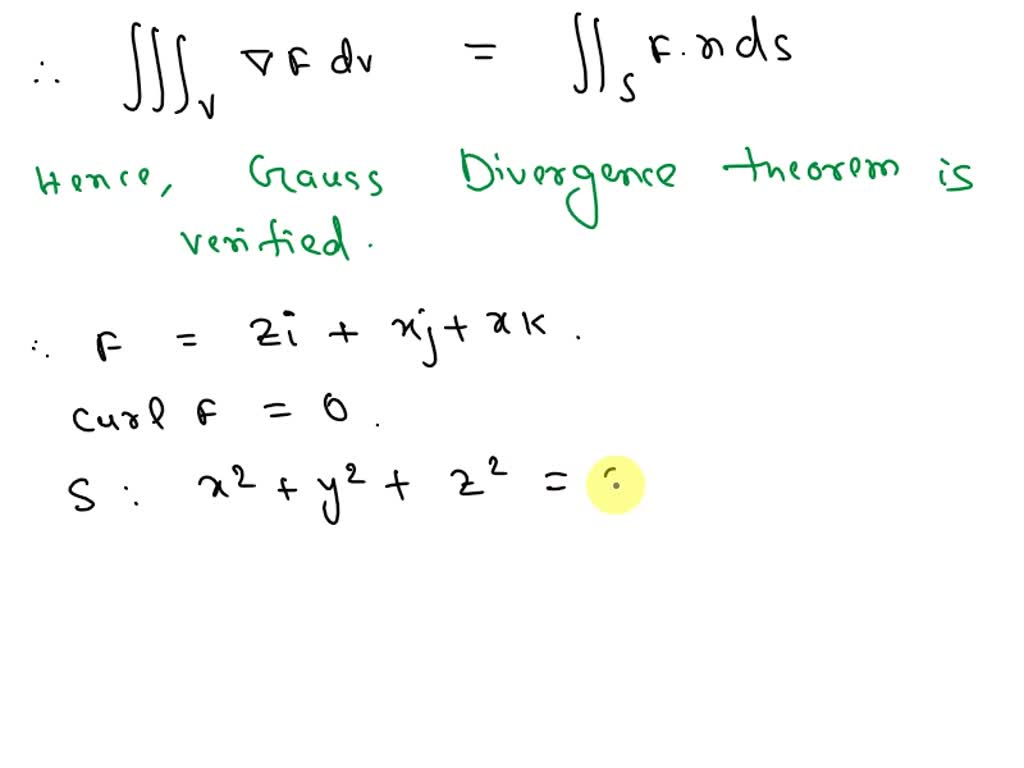 ∴ ∭_V ∇ F dv = ∬_S F. n ds
Hence, Gauss Divergence theorem is
verified.
∴ F = zi + xj + xk.
Curl F = 0.
S : x² + y² + z² =